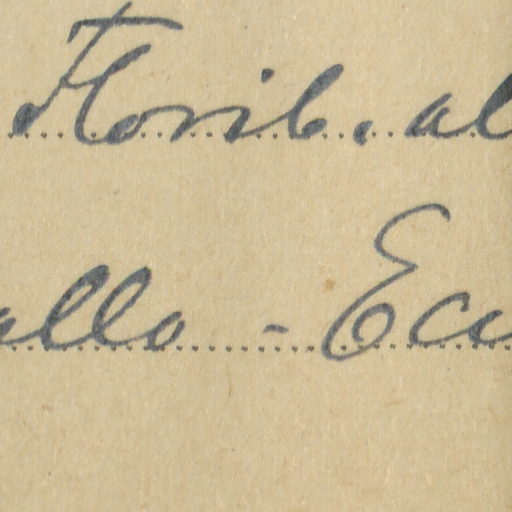 Florib. al
allo - Ecu